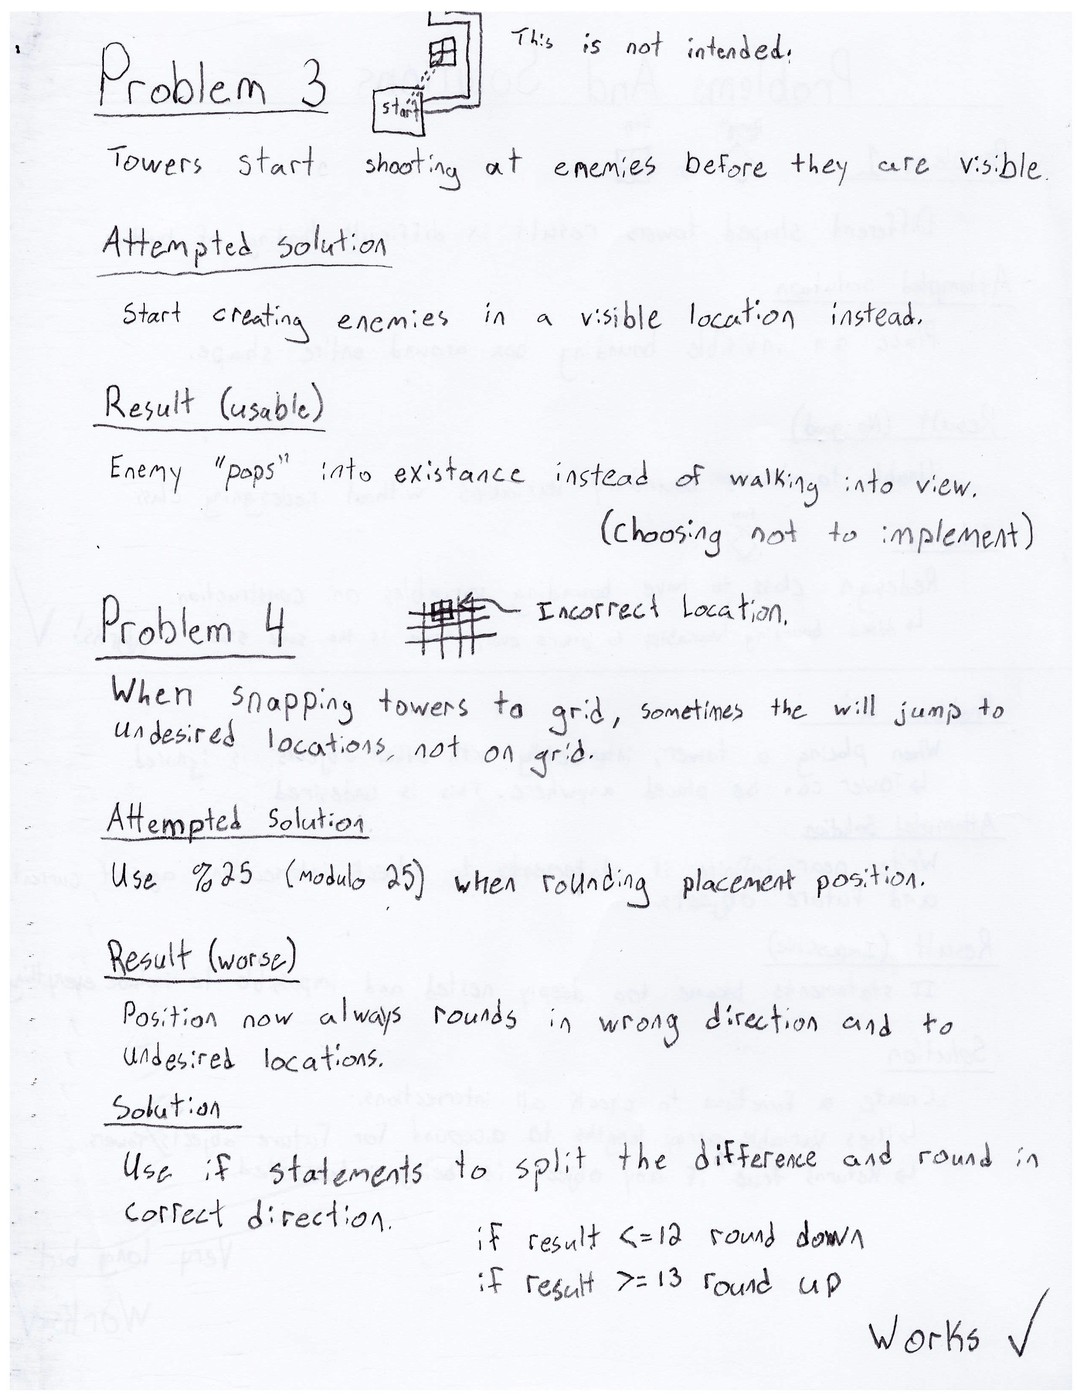 This is not intended.
Problem 3
start
Towers start shooting at enemies before they are visible.
Attempted solution
Start creating enemies in a visible location instead.
Result (usable)
Enemy "pops" into existance instead of walking into view.
(Choosing not to implement)
Problem 4
Incorrect Location.
When snapping towers to grid, sometimes the will jump to
undesired locations not on grid.
Attempted Solution
Use %25 (modulo 25) when rounding placement position.
Result (worse)
Position now always rounds in wrong direction and to
undesired locations.
Solution
Use if statements to split the difference and round in
correct direction.
if result <=12 round down
if result >=13 round up
Works ✓